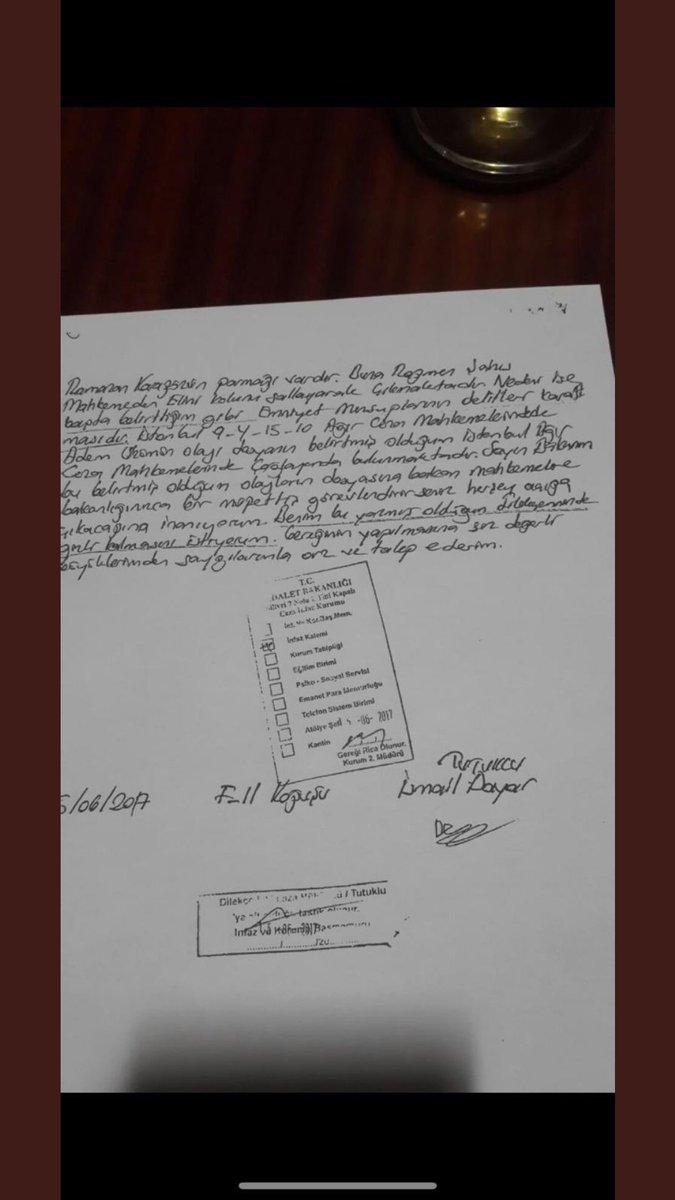 Ramazan parmağı vardır. Buna Rağmen Şahıs
Mahkemeden Elini kolunu sallayarak Çıkmaktadır. Neden ise
başda belirttiğim gibi Emniyet Mensuplarının delitler karart
masıdır. İstanbul 9-4-15-10 Ağır Ceza Mahkemelerinde
Adem olayı dosyanın belirtmiş olduğum İstanbul Ağır
Ceza Mahkemelerinde bulunmaktadır. Sayın
bu belirtmiş olduğum olayların dosyasına bakan mahkemelere
bakanlığınızca bir müfettiş görevlendirirseniz herşey açığa
çıkacağına inanıyorum. Benim bu yazmış olduğum dilekçeminde
gizli kalmasını istiyorum. Gereğinin yapılmasını siz değerli
büyüklerimden saygılarımla arz ve talep ederim.
T.C.
ADALET BAKANLIĞI
Silivri 7 Nolu L Tipi Kapalı
Ceza İnfaz Kurumu
İnfaz Kalemi
Kurum Tabipliği
Eğitim Birimi
Psiko - Sosyal Servisi
Emanet Para Memurluğu
Telefon Sistem Birimi
Atölye Şefi -06- 2017
Kantin
Gereği Rica Olunur.
Kurum 2. Müdürü
5/06/2017 F-11 Koğuşu Tutuklu
İsmail Dayar
/ Tutuklu
tasdik olunur.
İnfaz ve Koruma Başmemuru